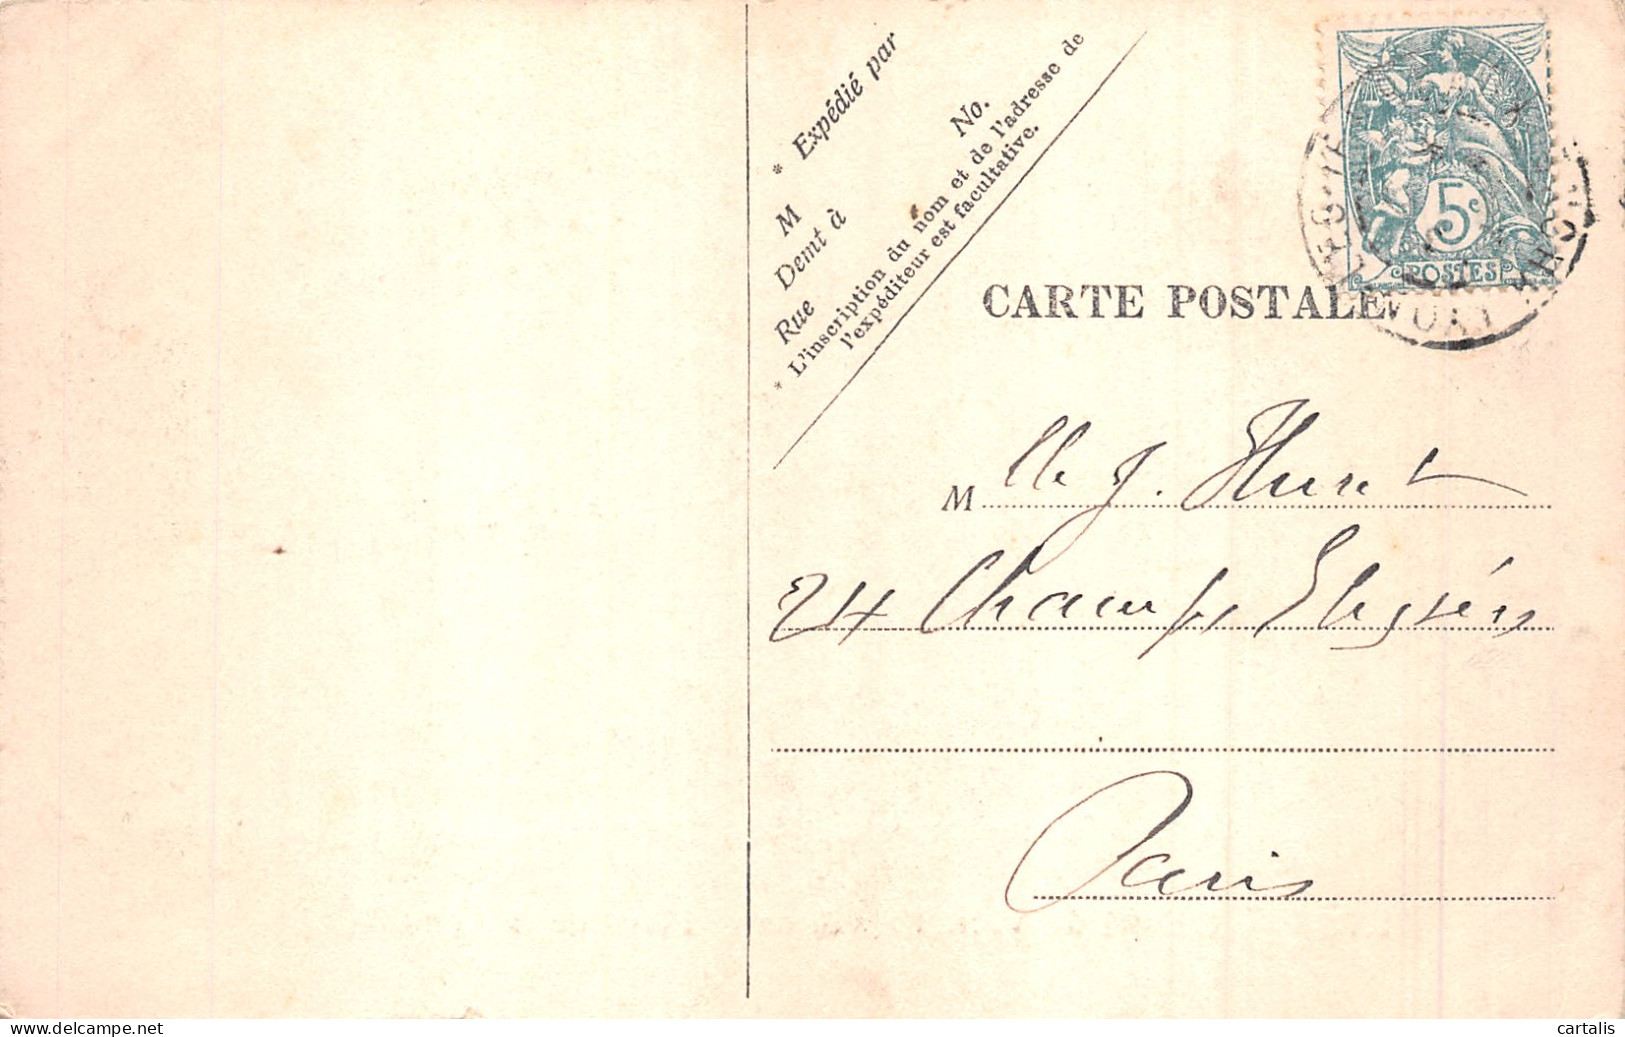 * Expédié par
M
Demt à
Rue No.
* L'inscription du nom et de l'adresse de
l'expéditeur est facultative.
5c
POSTES
CARTE POSTALE
Mlle J. Hunt
24 Champs Elysées
Paris
delcampe.net
cartalis